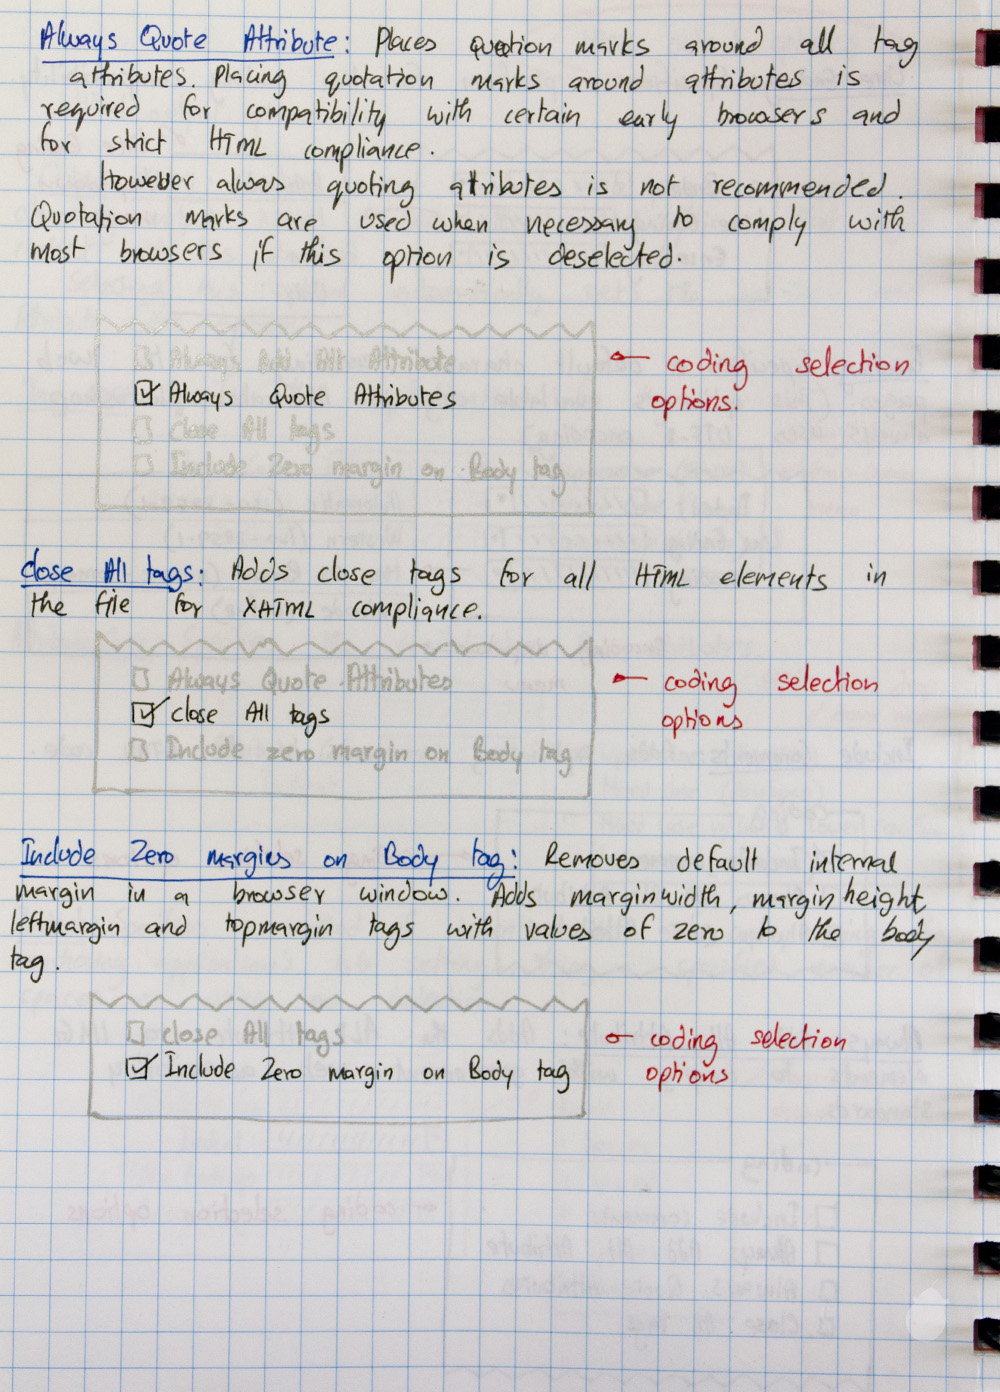 Always Quote Attribute: Places quotion marks around all tag
attributes. Placing quotation marks around attributes is
required for compatibility with certain early browsers and
for strict HTML compliance.
However alwas quoting attributes is not recommended.
Quotation marks are used when necessary to comply with
most browsers if this option is deselected.
Always Add Alt Attribute
coding selection
Always Quote Attributes
options.
Close All tags
Include Zero margin on Body tag
Close All tags: Adds close tags for all HTML elements in
the file for XHTML compliance.
Always Quote Attributes
coding selection
close All tags
options
Include zero margin on Body tag
Include Zero margies on Body tag: Removes default internal
margin in a browser window. Adds marginwidth, marginheight,
leftmargin and topmargin tags with values of zero to the body
tag.
close All tags
coding selection
Include Zero margin on Body tag
options